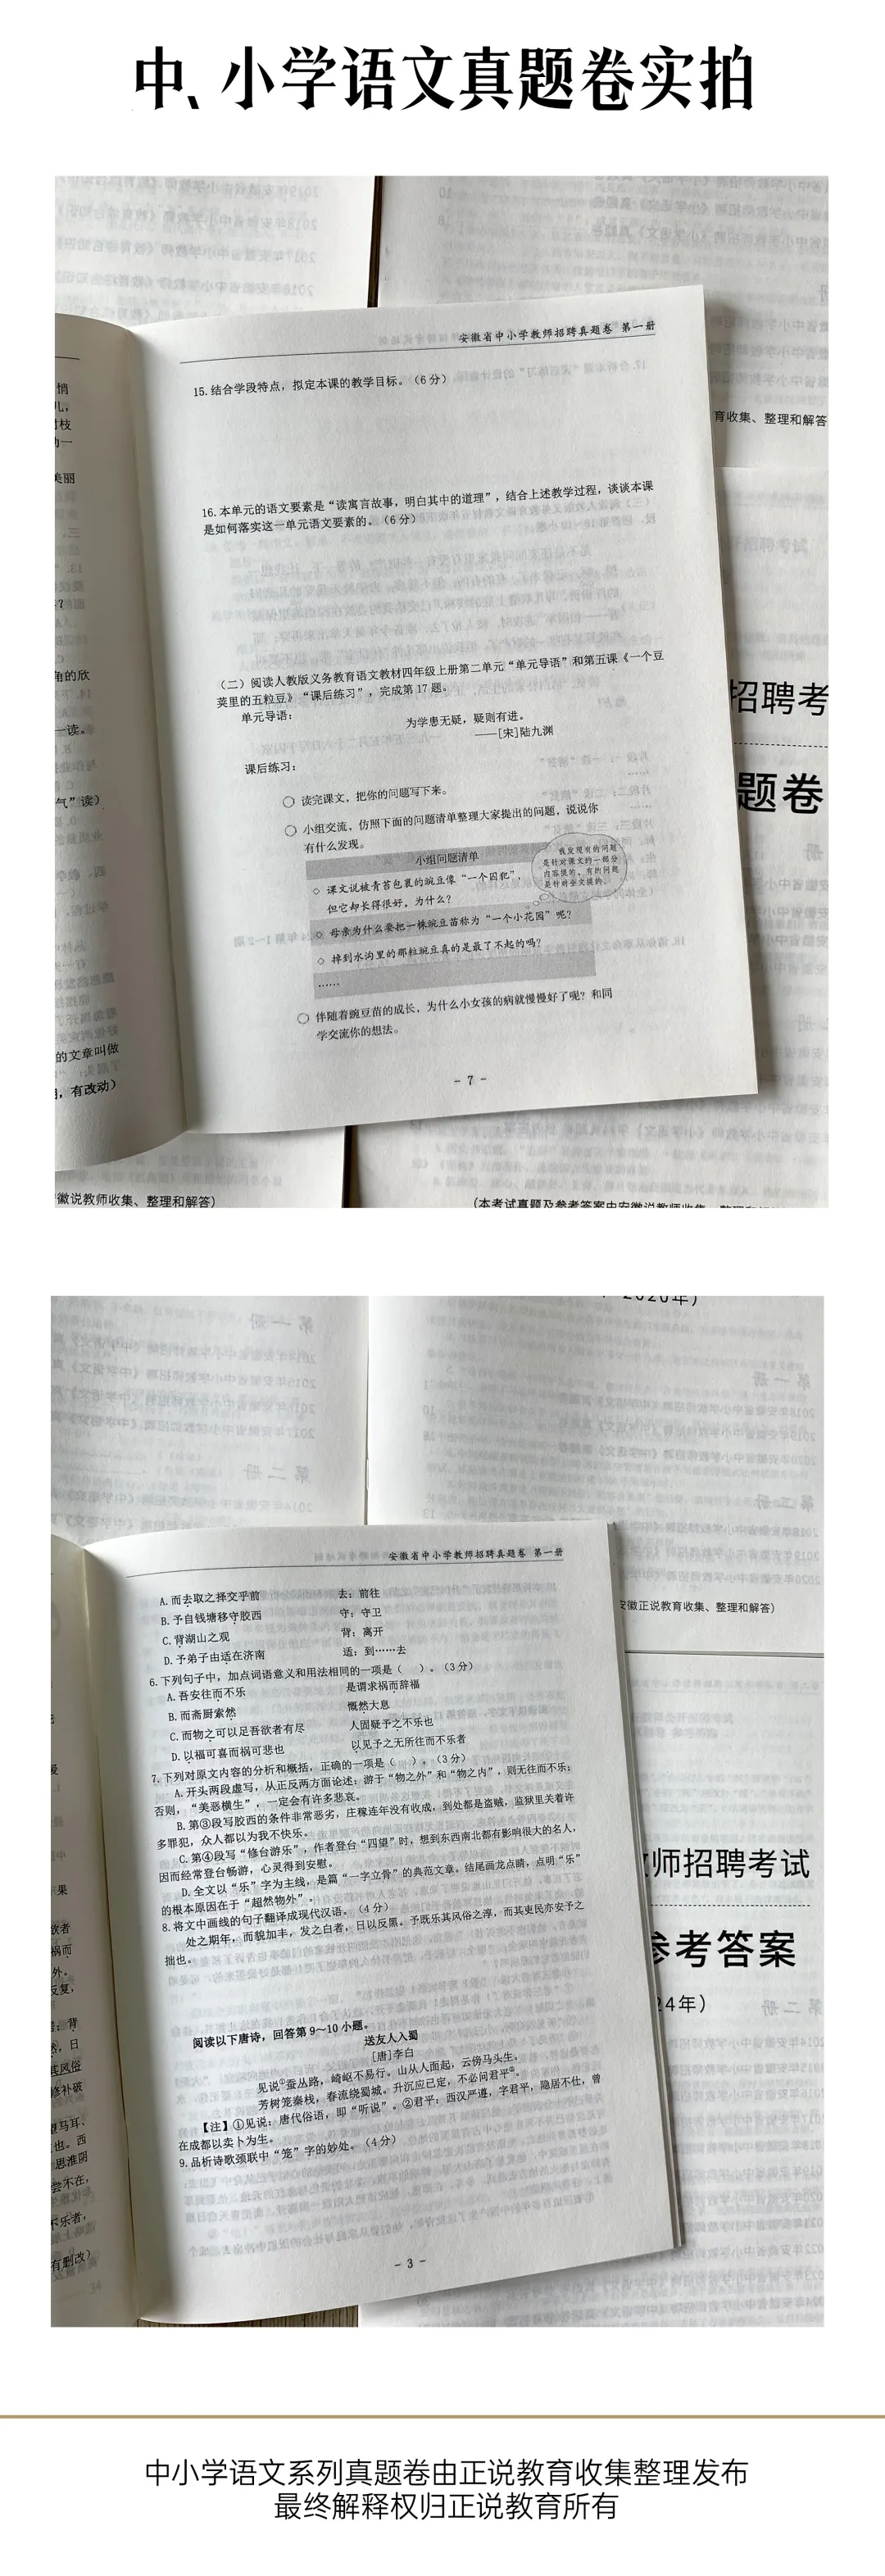 中、小学语文真题卷实拍
安徽省中小学教师招聘真题卷 第一册
15.结合学段特点，拟定本课的教学目标。（6分）
16.本单元的语文要素是“读寓言故事，明白其中的道理”，结合上述教学过程，谈谈本课
是如何落实这一单元语文要素的。（6分）
（二）阅读人教版义务教育语文教材四年级上册第二单元“单元导语”和第五课《一个豆
荚里的五粒豆》“课后练习”，完成第17题。
单元导语：
为学患无疑，疑则有进。
——[宋]陆九渊
课后练习：
读完课文，把你的问题写下来。
小组交流，仿照下面的问题清单整理大家提出的问题，说说你
有什么发现。
小组问题清单
◇ 课文说被青苔包裹的豌豆像“一个囚犯”，
但它却长得很好，为什么？
◇ 母亲为什么要把一株豌豆苗称为“一个小花园”呢？
◇ 掉到水沟里的那粒豌豆真的是最了不起的吗？
……
我发现有的问题
是针对课文的一部分
内容提的，有的问题
是针对全文提的。
伴随着豌豆苗的成长，为什么小女孩的病就慢慢好了呢？和同
学交流你的想法。
- 7 -
美丽
角的欣
一读。
气”读）
的文章叫做
，有改动）
育收集、整理和解答
招聘考
题卷
徽说教师收集、整理和解答）
（本考试真题及参考答案由安徽说教师收集、整理和
2020年）
安徽省中小学教师招聘真题卷 第一册
A.而去取之择交乎前 去：前往
B.予自钱塘移守胶西 守：守卫
C.背湖山之观 背：离开
D.予弟子由适在济南 适：到……去
6.下列句子中，加点词语意义和用法相同的一项是（ ）。（3分）
A.吾安往而不乐 是谓求祸而辞福
B.而斋厨索然 慨然大息
C.而物之可以足吾欲者有尽 人固疑予之不乐也
D.以福可喜而祸可悲也 以见予之无所往而不乐者
7.下列对原文内容的分析和概括，正确的一项是（ ）。（3分）
A.开头两段虚写，从正反两方面论述：游于“物之外”和“物之内”，则无往而不乐；
否则，“美恶横生”，一定会有许多悲哀。
B.第③段写胶西的条件非常恶劣，庄稼连年没有收成，到处都是盗贼，监狱里关着许
多罪犯，众人都以为我不快乐。
C.第④段写“修台游乐”，作者登台“四望”时，想到东西南北都有影响很大的名人，
因而经常登台畅游，心灵得到安慰。
D.全文以“乐”字为主线，是篇“一字立骨”的典范文章。结尾画龙点睛，点明“乐”
的根本原因在于“超然物外”。
8.将文中画线的句子翻译成现代汉语。（4分）
处之期年，而貌加丰，发之白者，日以反黑。予既乐其风俗之淳，而其吏民亦安予之
拙也。
阅读以下唐诗，回答第9～10小题。
送友人入蜀
[唐]李白
见说①蚕丛路，崎岖不易行。山从人面起，云傍马头生。
芳树笼秦栈，春流绕蜀城。升沉应已定，不必问君平②。
【注】①见说：唐代俗语，即“听说”。②君平：西汉严遵，字君平，隐居不仕，曾
在成都以卖卜为生。
9.品析诗歌颈联中“笼”字的妙处。（4分）
- 3 -
安徽正说教育收集、整理和解答）
师招聘考试
参考答案
24年）
中小学语文系列真题卷由正说教育收集整理发布
最终解释权归正说教育所有